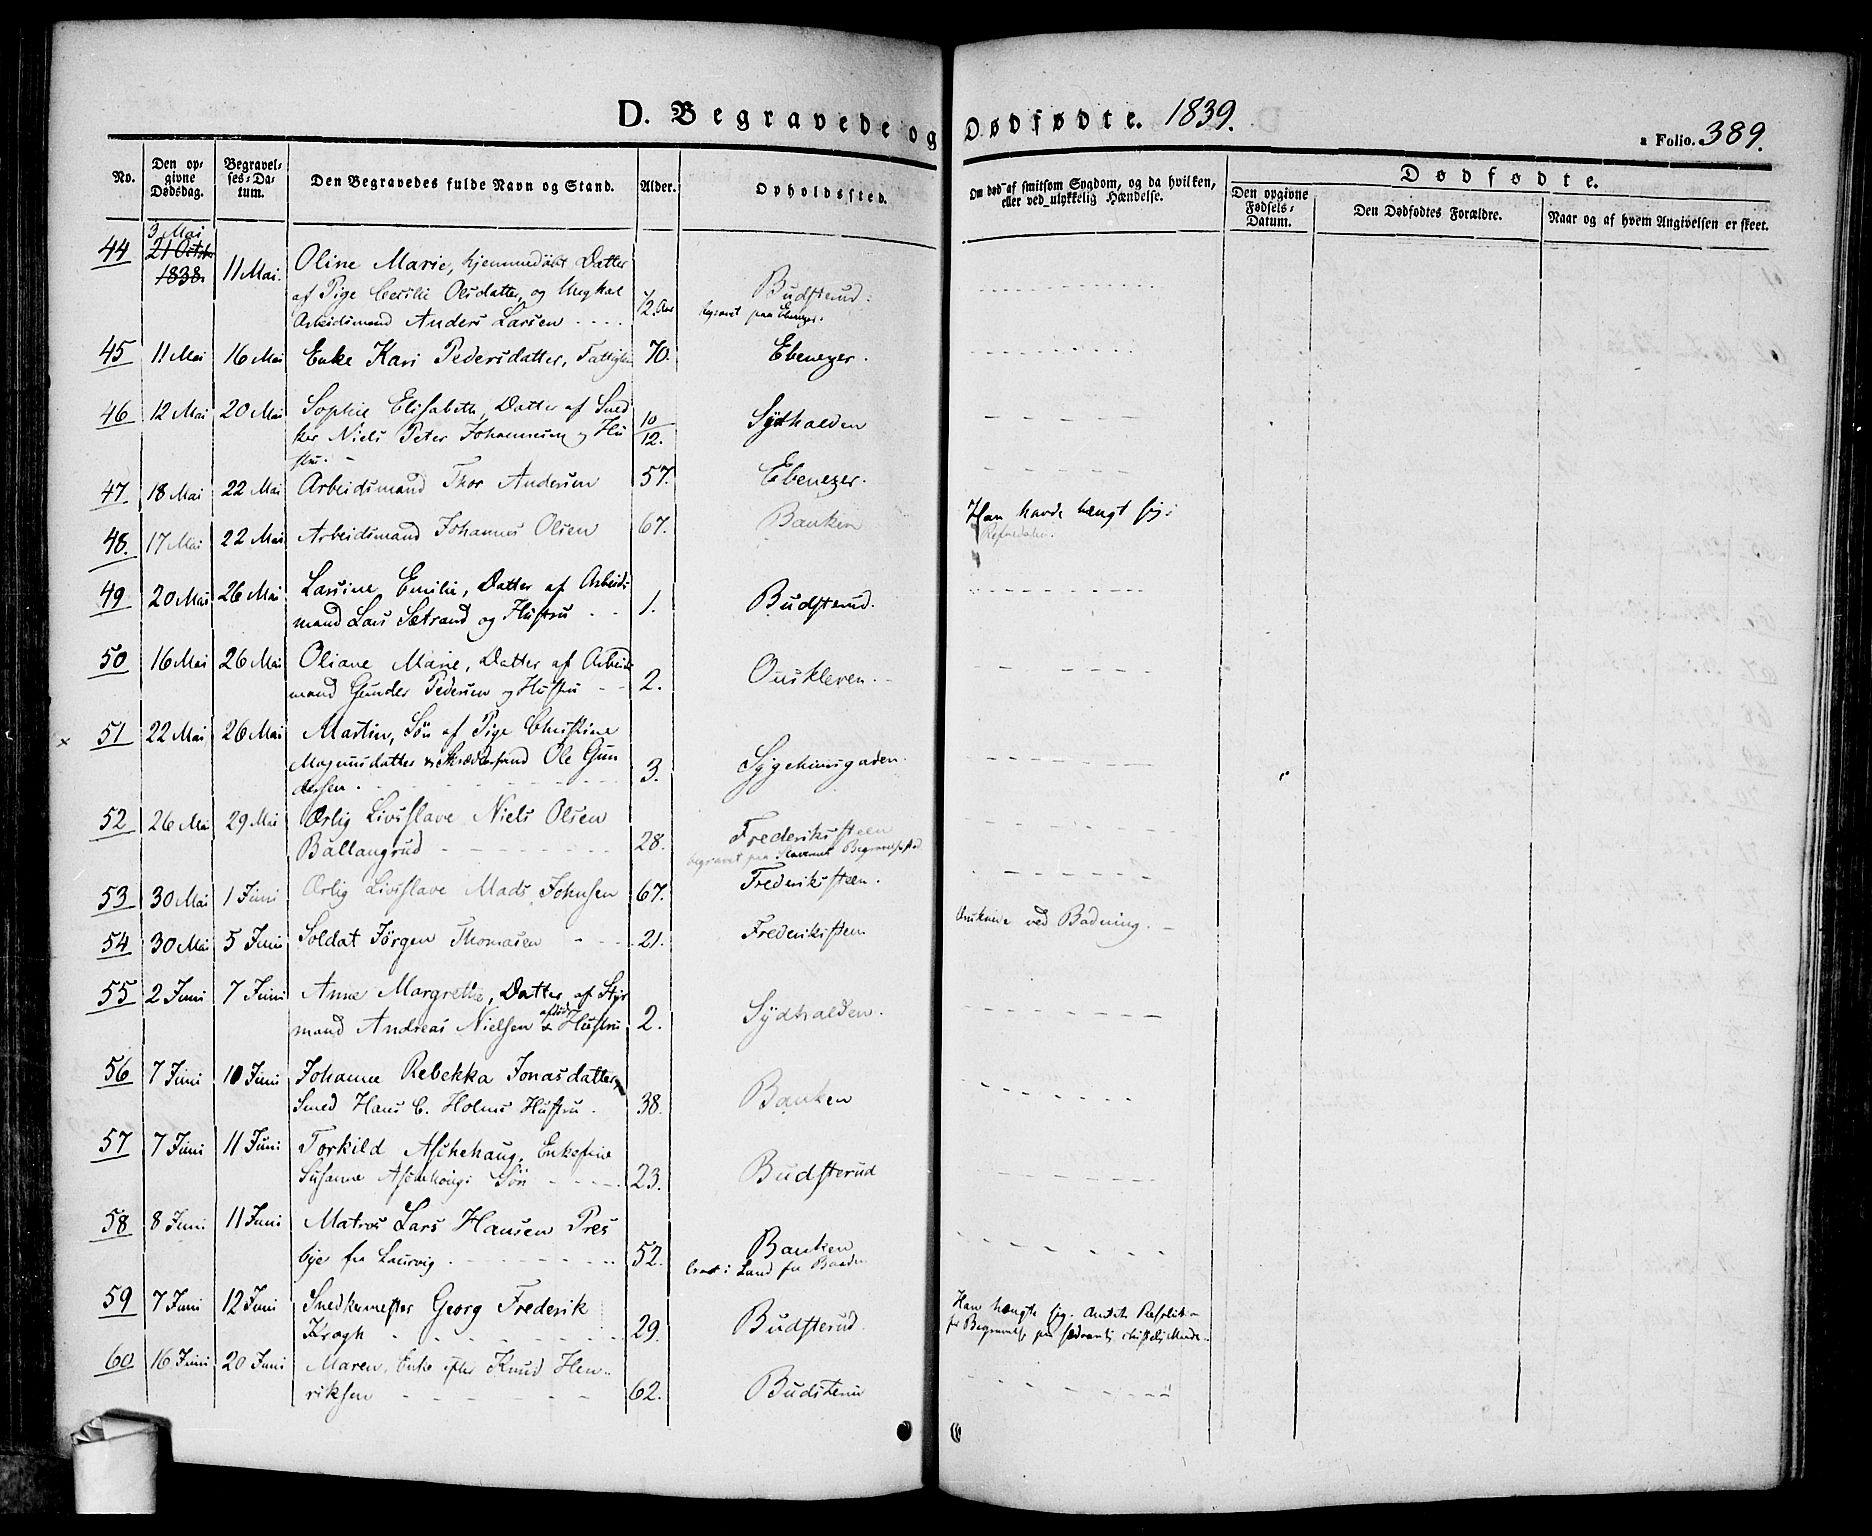 D. Begravede og Dødfødte. 1839.
a Folio. 389.
No.
Den opgivne Dødsdag.
Begravelses-Datum.
Den Begravedes fulde Navn og Stand.
Alder.
Opholdssted.
Om død af smitsom Sygdom, og da hvilken,
eller ved ulykkelig Hændelse.
Dødfødte.
Den opgivne Fødsels-Datum.
Den Dødfødtes Forældre.
Naar og af hvem Angivelsen er skeet.
3 Mai
44 21 Octbr 1838. 11 Mai. Oline Marie, hjemmedøbt Datter
af Pige Cecilie Olsdatter og Ungkal
Arbeidsmand Anders Larsen 1/2 Aar Budsterud.
begravet paa Ebenezer.
45 11 Mai 16 Mai Enke Kari Pedersdatter, 70. Ebenezer.
46 12 Mai 20 Mai Sophie Elisabeth, Datter af Sned
ker Niels Peter Johannesen og Hu 10/12. Sydhalden
stru.
47. 18 Mai 22 Mai Arbeidsmand Thor Andersen 57. Ebenezer.
48. 17 Mai 22 Mai Arbeidsmand Johannes Olsen 67. Banken Han havde hængt sig.
49 20 Mai 26 Mai Larsine Emilie, Datter af Arbeids
mand Lars Sætrand og Hustru 1. Budsterud.
50 16 Mai 26 Mai Oliane Marie, Datter af Arbeids
mand Gunder Pedersen og Hustru 2. Ouskleven.
51 22 Mai 26 Mai Martin, Søn af Pige Christine
Magnusdatter og Ole Gun 3. Sygehuusgaden.
dersen.
52 26 Mai 29 Mai Ærlig Livsslave Niels Olsen
Ballangrud 28. Frederiksteen
begravet paa Slavernes Begravelsested
53 30 Mai 1 Juni Ærlig Livsslave Mads Johnsen 67. Frederiksteen.
54 30 Mai 5 Juni Soldat Jørgen Thomasen 21. Frederiksteen ved Badning.
55 2 Juni 7 Juni Anne Margrethe, Datter af Styr
mand Andreas Nielsen & afdøde Hustru 2. Sydhalden.
56 7 Juni 10 Juni Johanne Rebekka Jonasdatter,
Smed Hans C. Holms Hustru. 38. Banken
57 7 Juni 11 Juni Torkild Aschehoug, Enkefrue
Susanne Aschehougs Søn 23. Budsterud
58 8 Juni 11 Juni Matros Lars Hansen Pres
bye fra Laurvig 52. Banken
bragt i Land fra
59 7 Juni 12 Juni Snedkermester Georg Frederik
Krogh 29. Budsterud. Han hængte sig.
60 16 Juni 20 Juni Maren, Enke efter Knud Hen-
riksen 62. Budsterud